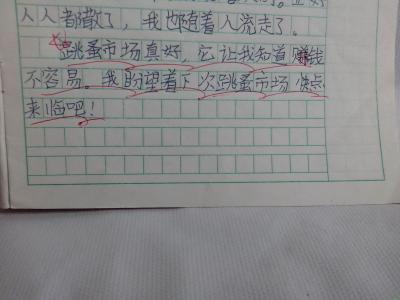 人人都散了，我也随着人流走了。
跳蚤市场真好，它让我知道赚钱
不容易。我盼望着下次跳蚤市场快点
来临吧！